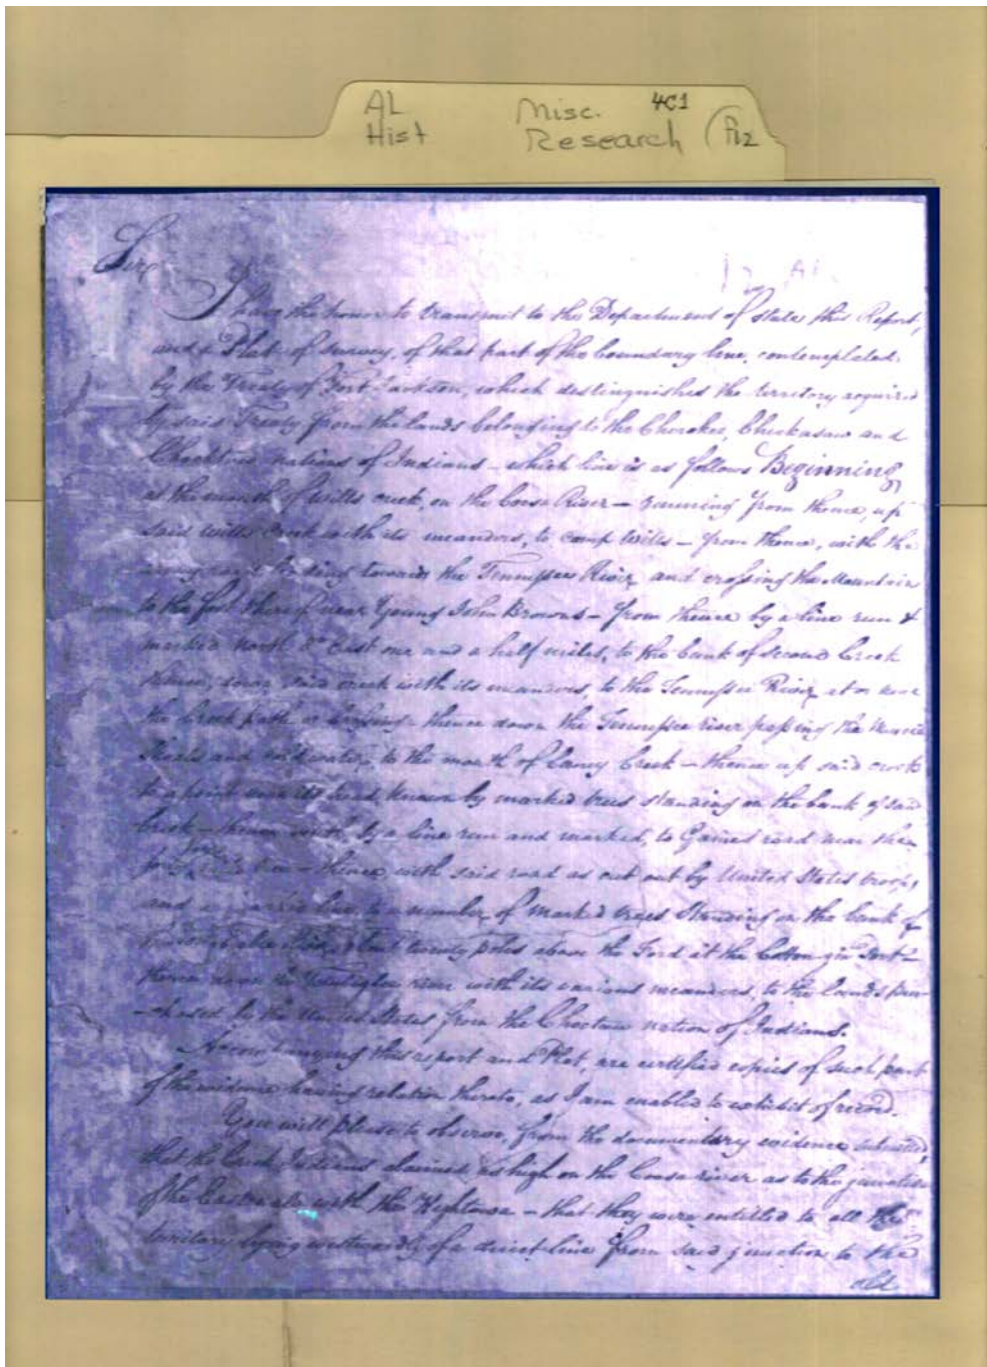 AL Misc. 4C1
Hist Research
Sir
I have the honor to transmit to the Department of State this Report,
and a Plat of survey, of that part of the boundary line, contemplated
by the Treaty of Fort Jackson, which destinguishes the territory acquired
by said Treaty from the lands belonging to the Cherokee, Chickasaw and
Chocktaw nations of Indians – which line is as follows Beginning
at the mouth of wills creek, on the Coosa River – running from thence, up
said wills creek with its meanders, to camp Wills – from thence, with the
leading towards the Tennessee River, and crossing the Mountain
to the foot thereof near Young John Browns – from thence by a line run &
marked North 8° East one and a half miles, to the bank of second Creek
thence, down said creek with its meanders, to the Tennessee River, at or near
the Creek path or crossing – thence down the Tennessee river passing the Muscle
Shoals and to the mouth of Caney Creek – thence up said creek
to a point near its head, known by marked trees standing on the bank of said
creek – thence south by a line run and marked, to Gaines road near the
– thence with said road as cut out by United States troops,
and to a number of marked trees standing on the bank of
twenty poles above the Ford at the Cotton gin Port –
thence down the river with its various meanders, to the lands pur-
-chased by the United States from the Choctaw nation of Indians.
Accompanying this report and Plat, are certified copies of such part
of the evidence having relation thereto, as I am enabled to exhibit of record.
You will please to observe, from the documentary evidence submitted,
that the Creek Indians claimed as high on the Coosa river as to the junction
of the with the Hightower – that they were entitled to all the
territory lying westwardly of a direct line from said junction to the
old